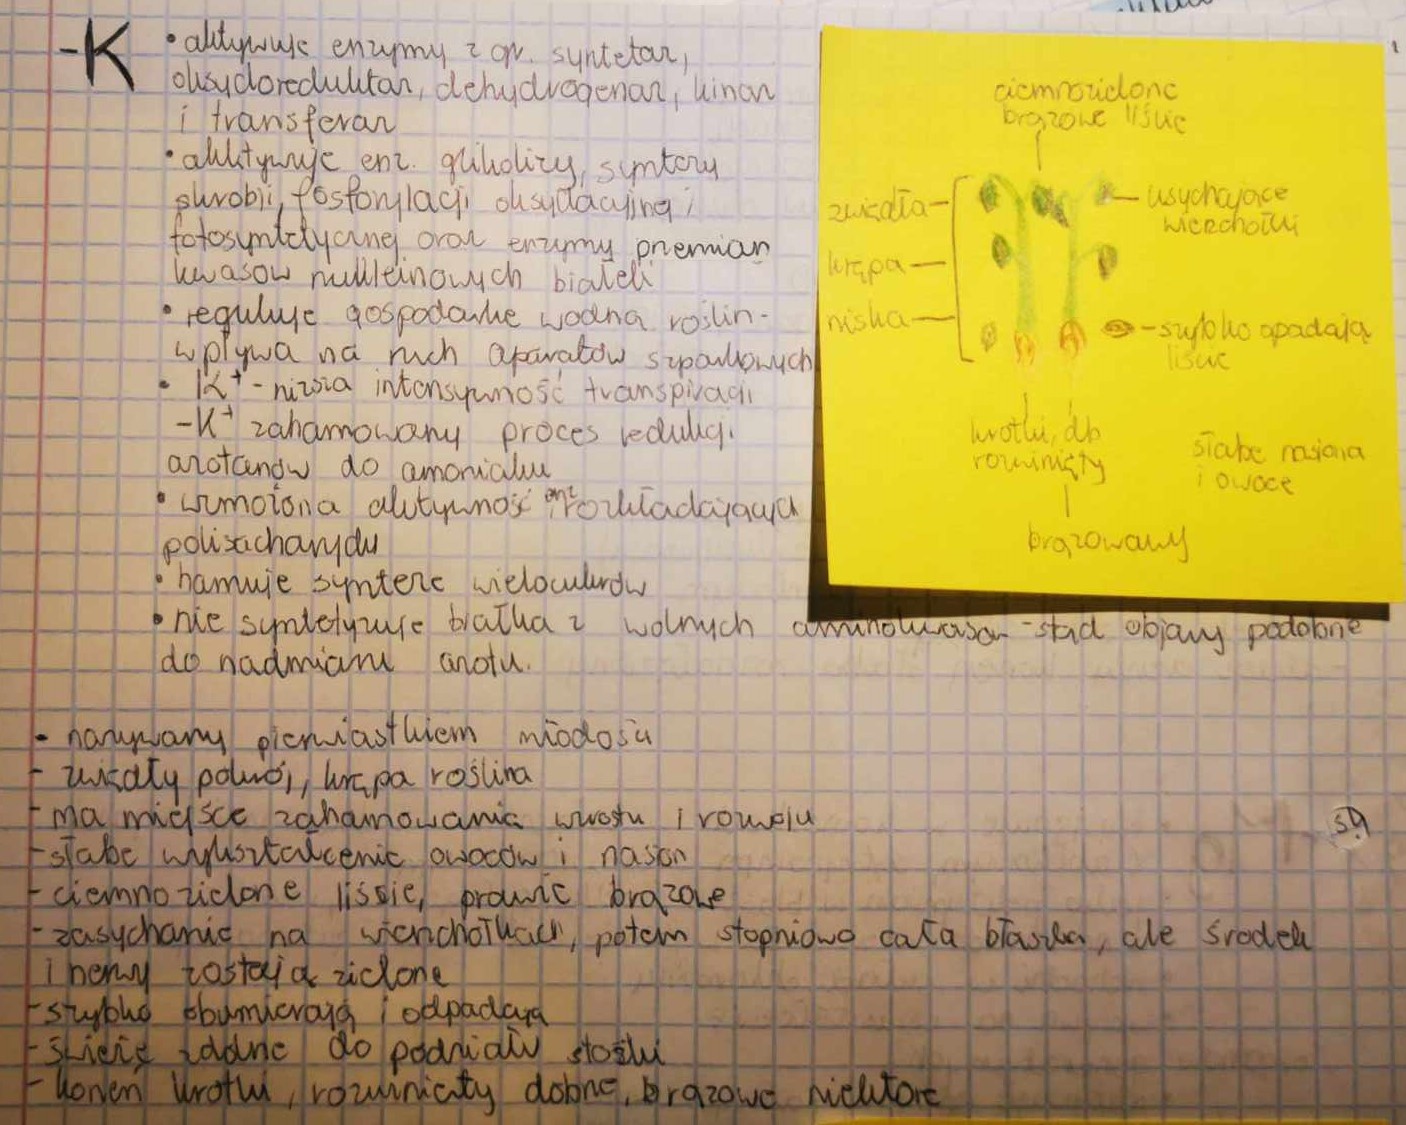 -K
• aktywuje enzymy z gr. syntetaz,
oksydoreduktaz, dehydrogenaz, kinaz
i transferaz
• akktywuje enz. glikolizy, syntezy
skrobii, fosforylacji oksydacyjnej i
fotosyntetycznej oraz enzymy przemian
kwasów nukleinowych białek
• reguluje gospodarkę wodną roślin-
wpływa na ruch aparatów szparkowych
• K+ - niższa intensywność transpiracji
-K+ zahamowany proces redukcji
azotanów do amoniaku
• wzmożona aktywność enz. rozkładających
polisacharydu
• hamuje syntezę wielocukrów
• nie syntetyzuje białka z wolnych aminokwasów - stąd objawy podobne
do nadmiaru azotu.
ciemnozielone
brązowe liście
zwiędła
krępa
niska
usychające
wierzchołki
szybko opadają
liście
krótki, db
rozwinięty
brązowawy
słabe nasiona
i owoce
• nazywany pierwiastkiem młodości
- zwiędły pokrój, krępa roślina
- ma miejsce zahamowania wzrostu i rozwoju
- słabe wykształcenie owoców i nasion
- ciemnozielone liście, prawie brązowe
- zasychanie na wierzchołkach, potem stopniowo cała blaszka, ale środek
i nerwy zostają zielone
- szybko obumierają i odpadają
- świeże zdolne do podziału stożki
- korzeń krótki, rozwinięty dobrze, brązowe niektóre